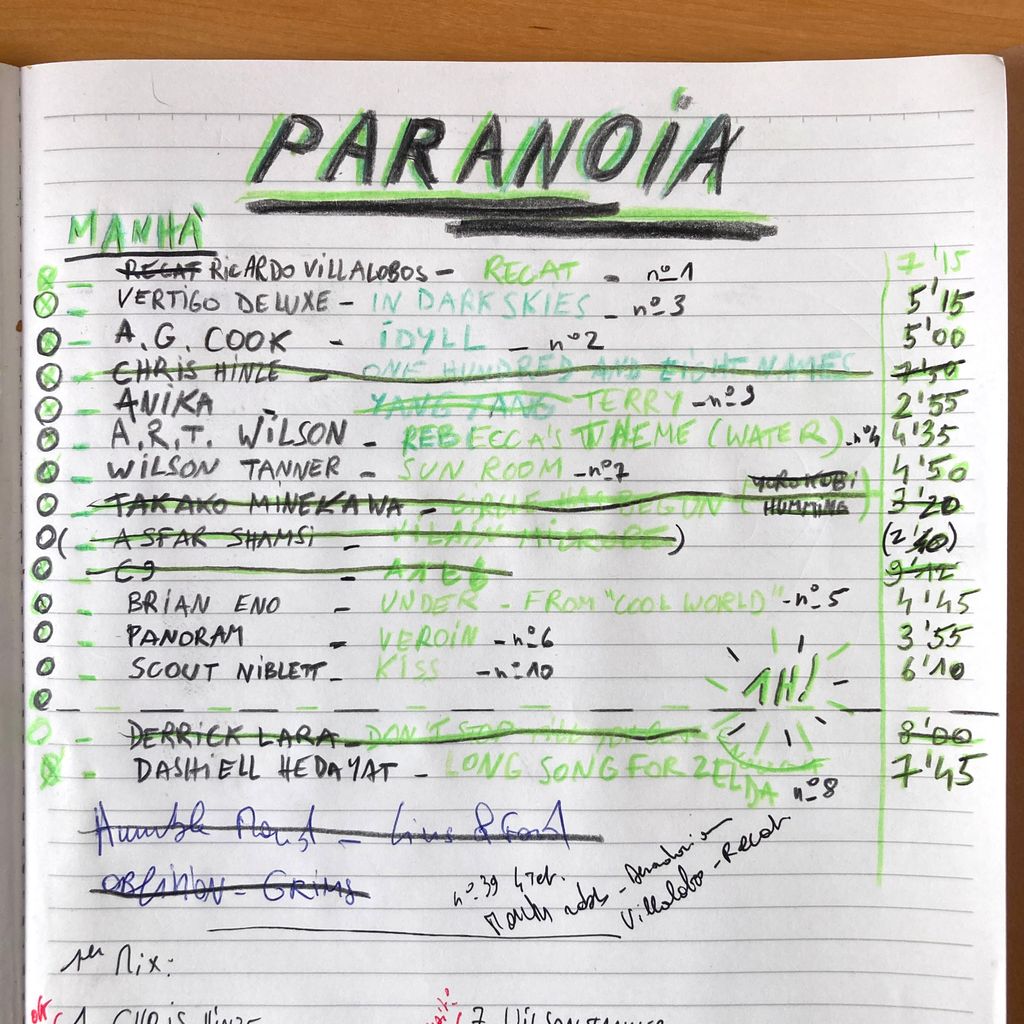 PARANOIA
MANHÃ
RECAT RICARDO VILLALOBOS - RECAT - nº1 7'15
VERTIGO DELUXE - IN DARK SKIES - nº3 5'15
A.G. COOK - IDYLL - nº2 5'00
CHRIS HINZE - ONE HUNDRED AND EIGHT NAMES 7'50
ANIKA - YANG YANG TERRY - nº9 2'55
A.R.T. WILSON - REBECCA'S THEME (WATER) - nº4 4'35
WILSON TANNER - SUN ROOM - nº7 4'50
TAKAKO MINEKAWA - CIRCLE HAS BEGUN (YOROKOBI HUMMING) 7'20
( - ASFAR SHAMSI - VILAIN MICROBE) (2'40)
C9 - 9'12
BRIAN ENO - UNDER - FROM "COOL WORLD" - nº5 4'45
PANORAM - VEROIN - nº6 3'55
SCOUT NIBLETT - KISS - nº10 6'10
AH!
DERRICK LARA - DON'T STOP TILL YOU GET 8'00
DASHIELL HEDAYAT - LONG SONG FOR ZELDA nº8 7'45
OBLIVION - GRIMS
nº39
Villalobos - Recat
1er Mix:
1 CHRIS HINZE
7 WILSON TANNER